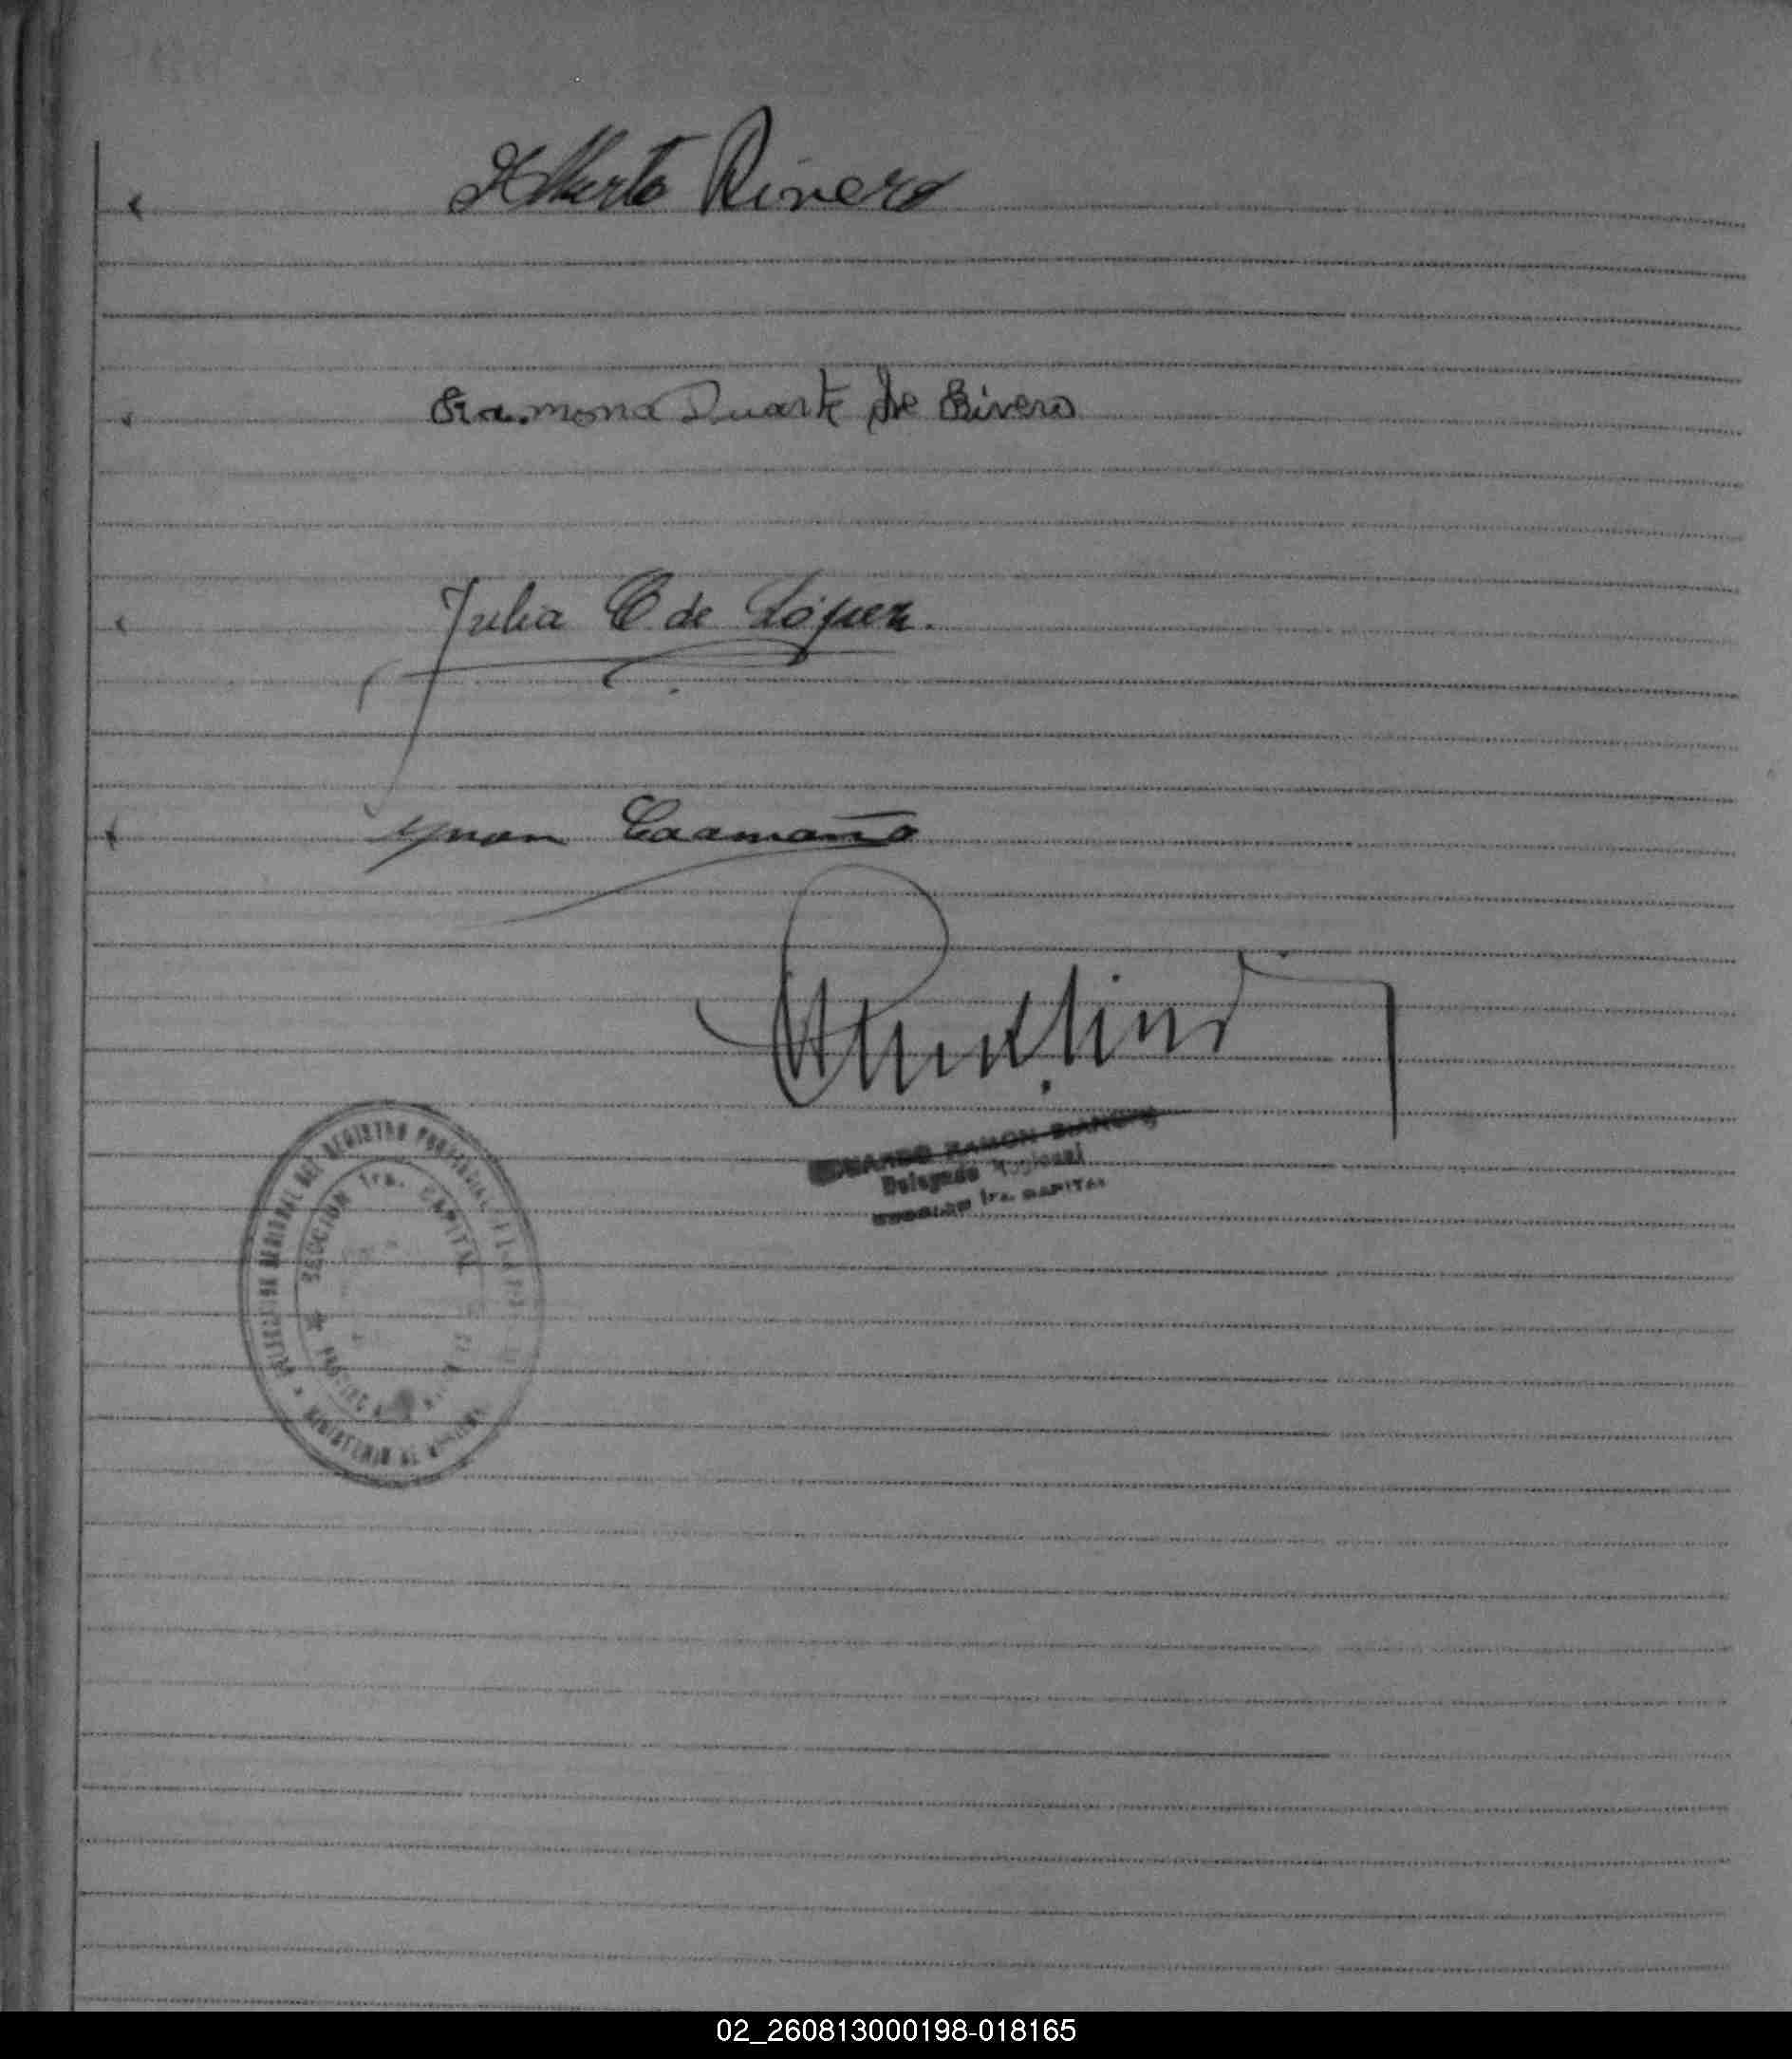 Alberto Rivero
Ramona Duarte de Rivero
Julia C de López.
Juan Caamaño
RAMON
Delegado Regional
1ra. CAPITAL
DIRECCION GENERAL DEL REGISTRO PROVINCIAL
SECCION 1ra. CAPITAL
MINISTERIO DE
02_260813000198-018165